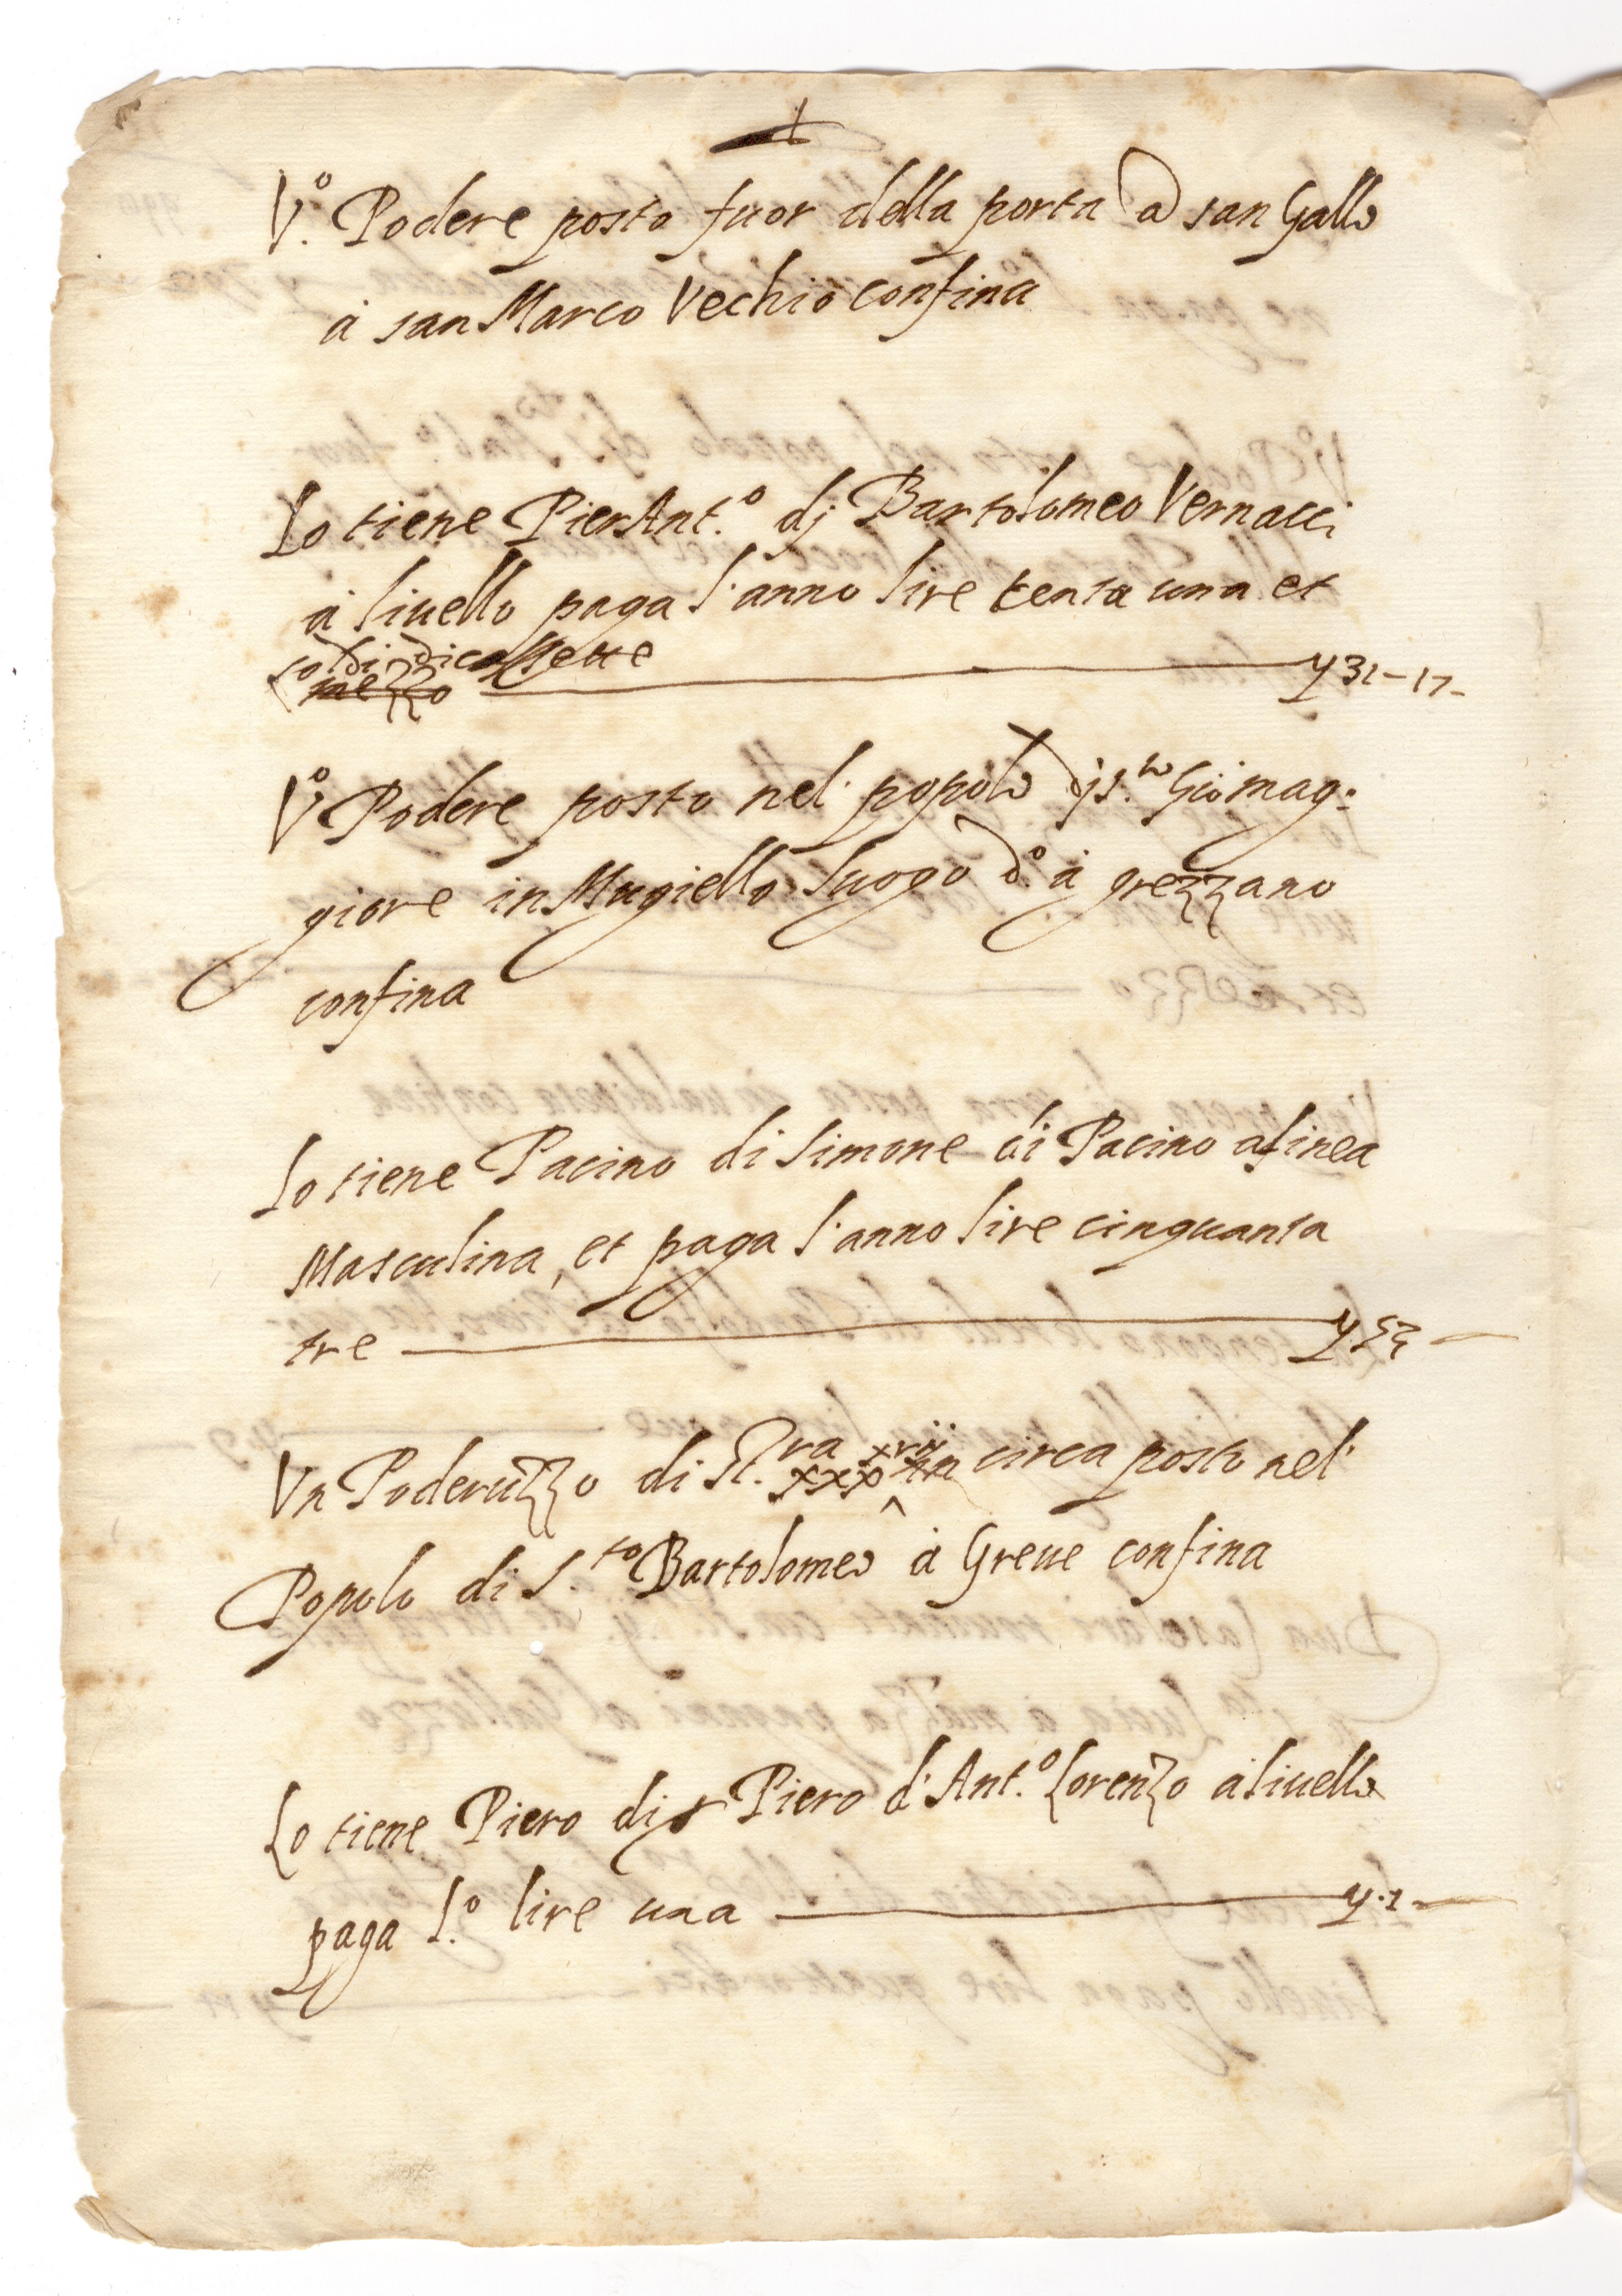 V.º Podere posto fuor della porta a san Gallo
à san Marco Vechio confina
Lo tiene PierAnt.º dj Bartolomeo Vernacci
à liuello paga l'anno lire tenta una et
soldi dicassette
mezzo y 31-17-
Vº Podere posto nel popolo dj S.to Gio mag:
giore in Mugiello luogo d.º à grezzano
confina
Lo tiene Pacino di Simone di Pacino a linea
Masculina, et paga l'anno lire cinquanta
tre y 53
Vn Poderuzzo di St.ra xvij circa posto nel
xxx
Popolo di S.to Bartolomeo à Greue confina
Lo tiene Piero di Piero d'Ant.º Lorenzo à liuello
paga l.º lire una y.1